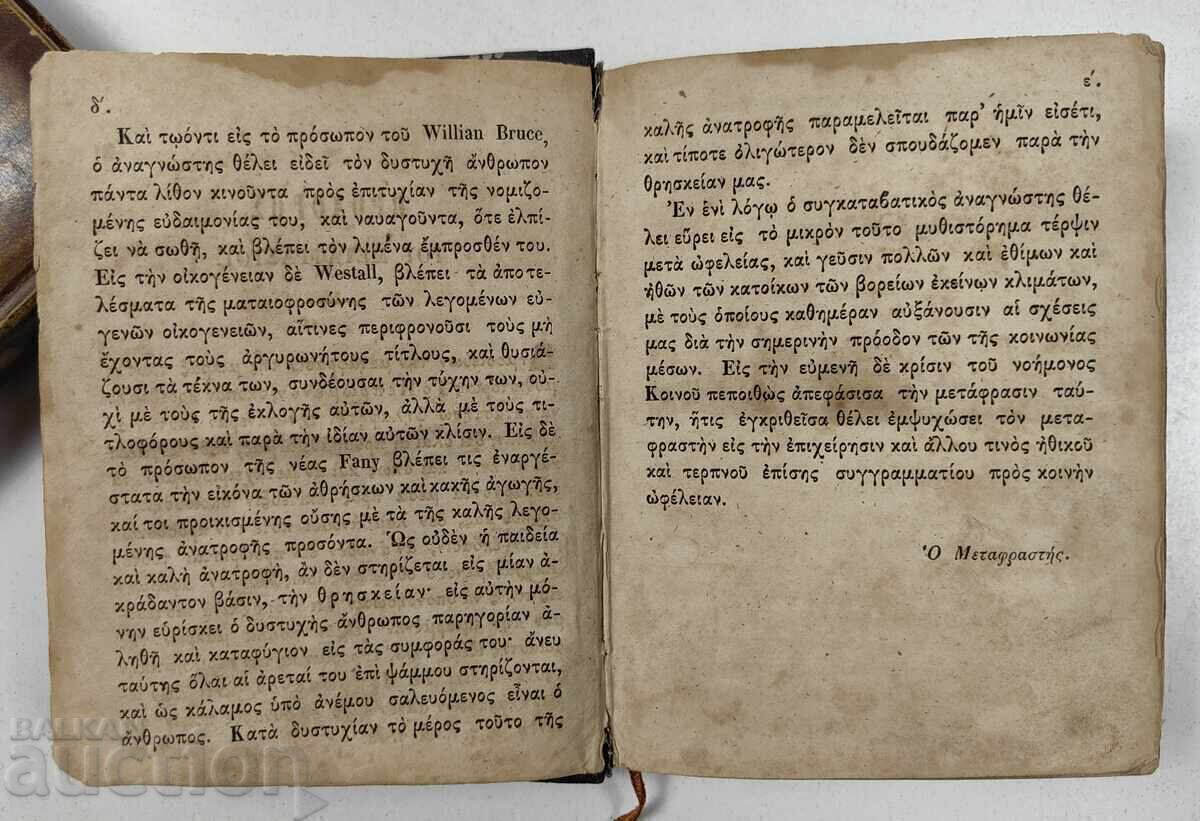 δ΄.
Καὶ τῳόντι εἰς τὸ πρόσωπον τοῦ Willian Bruce,
ὁ ἀναγνώστης θέλει εἰδεῖ τὸν δυστυχῆ ἄνθρωπον
πάντα λίθον κινοῦντα πρὸς ἐπιτυχίαν τῆς νομιζο-
μένης εὐδαιμονίας του, καὶ ναυαγοῦντα, ὅτε ἐλπί-
ζει νὰ σωθῇ, καὶ βλέπει τὸν λιμένα ἔμπροσθέν του.
Εἰς τὴν οἰκογένειαν δὲ Westall, βλέπει τὰ ἀποτε-
λέσματα τῆς ματαιοφροσύνης τῶν λεγομένων εὐ-
γενῶν οἰκογενειῶν, αἵτινες περιφρονοῦσι τοὺς μὴ
ἔχοντας τοὺς ἀργυρωνήτους τίτλους, καὶ θυσιά-
ζουσι τὰ τέκνα των, συνδέουσαι τὴν τύχην των, οὐ-
χὶ μὲ τοὺς τῆς ἐκλογῆς αὐτῶν, ἀλλὰ μὲ τοὺς τι-
τλοφόρους καὶ παρὰ τὴν ἰδίαν αὐτῶν κλίσιν. Εἰς δὲ
τὸ πρόσωπον τῆς νέας Fany βλέπει τις ἐναργέ-
στατα τὴν εἰκόνα τῶν ἀθρήσκων καὶ κακῆς ἀγωγῆς,
καί τοι προικισμένης οὔσης μὲ τὰ τῆς καλῆς λεγο-
μένης ἀνατροφῆς προσόντα. Ὡς οὐδὲν ἡ παιδεία
καὶ καλὴ ἀνατροφὴ, ἂν δὲν στηρίζεται εἰς μίαν ἀ-
κράδαντον βάσιν, τὴν θρησκείαν· εἰς αὐτὴν μό-
νην εὑρίσκει ὁ δυστυχὴς ἄνθρωπος παρηγορίαν ἀ-
ληθῆ καὶ καταφύγιον εἰς τὰς συμφοράς του· ἄνευ
ταύτης ὅλαι αἱ ἀρεταί του ἐπὶ ψάμμου στηρίζονται,
καὶ ὡς κάλαμος ὑπὸ ἀνέμου σαλευόμενος εἶναι ὁ
ἄνθρωπος. Κατὰ δυστυχίαν τὸ μέρος τοῦτο τῆς
ε΄.
καλῆς ἀνατροφῆς παραμελεῖται παρ' ἡμῖν εἰσέτι,
καὶ τίποτε ὀλιγώτερον δὲν σπουδάζομεν παρὰ τὴν
θρησκείαν μας.
Ἐν ἑνὶ λόγῳ ὁ συγκαταβατικὸς ἀναγνώστης θέ-
λει εὕρει εἰς τὸ μικρὸν τοῦτο μυθιστόρημα τέρψιν
μετὰ ὠφελείας, καὶ γεῦσιν πολλῶν καὶ ἐθίμων καὶ
ἠθῶν τῶν κατοίκων τῶν βορείων ἐκείνων κλιμάτων,
μὲ τοὺς ὁποίους καθημέραν αὐξάνουσιν αἱ σχέσεις
μας διὰ τὴν σημερινὴν πρόοδον τῶν τῆς κοινωνίας
μέσων. Εἰς τὴν εὐμενῆ δὲ κρίσιν τοῦ νοήμονος
Κοινοῦ πεποιθὼς ἀπεφάσισα τὴν μετάφρασιν ταύ-
την, ἥτις ἐγκριθεῖσα θέλει ἐμψυχώσει τὸν μετα-
φραστὴν εἰς τὴν ἐπιχείρησιν καὶ ἄλλου τινὸς ἠθικοῦ
καὶ τερπνοῦ ἐπίσης συγγραμματίου πρὸς κοινὴν
ὠφέλειαν.
Ὁ Μεταφραστής.
BALKAN
auction